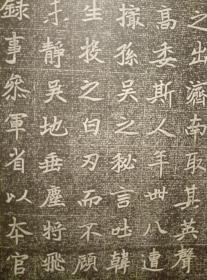 之出濟南取其英聲
高委斯人年卅八連
撮孫吳之秘言吐韓
生投之白刃而不顧
才靜吳地垂塵將飛
録事叅軍省以本官